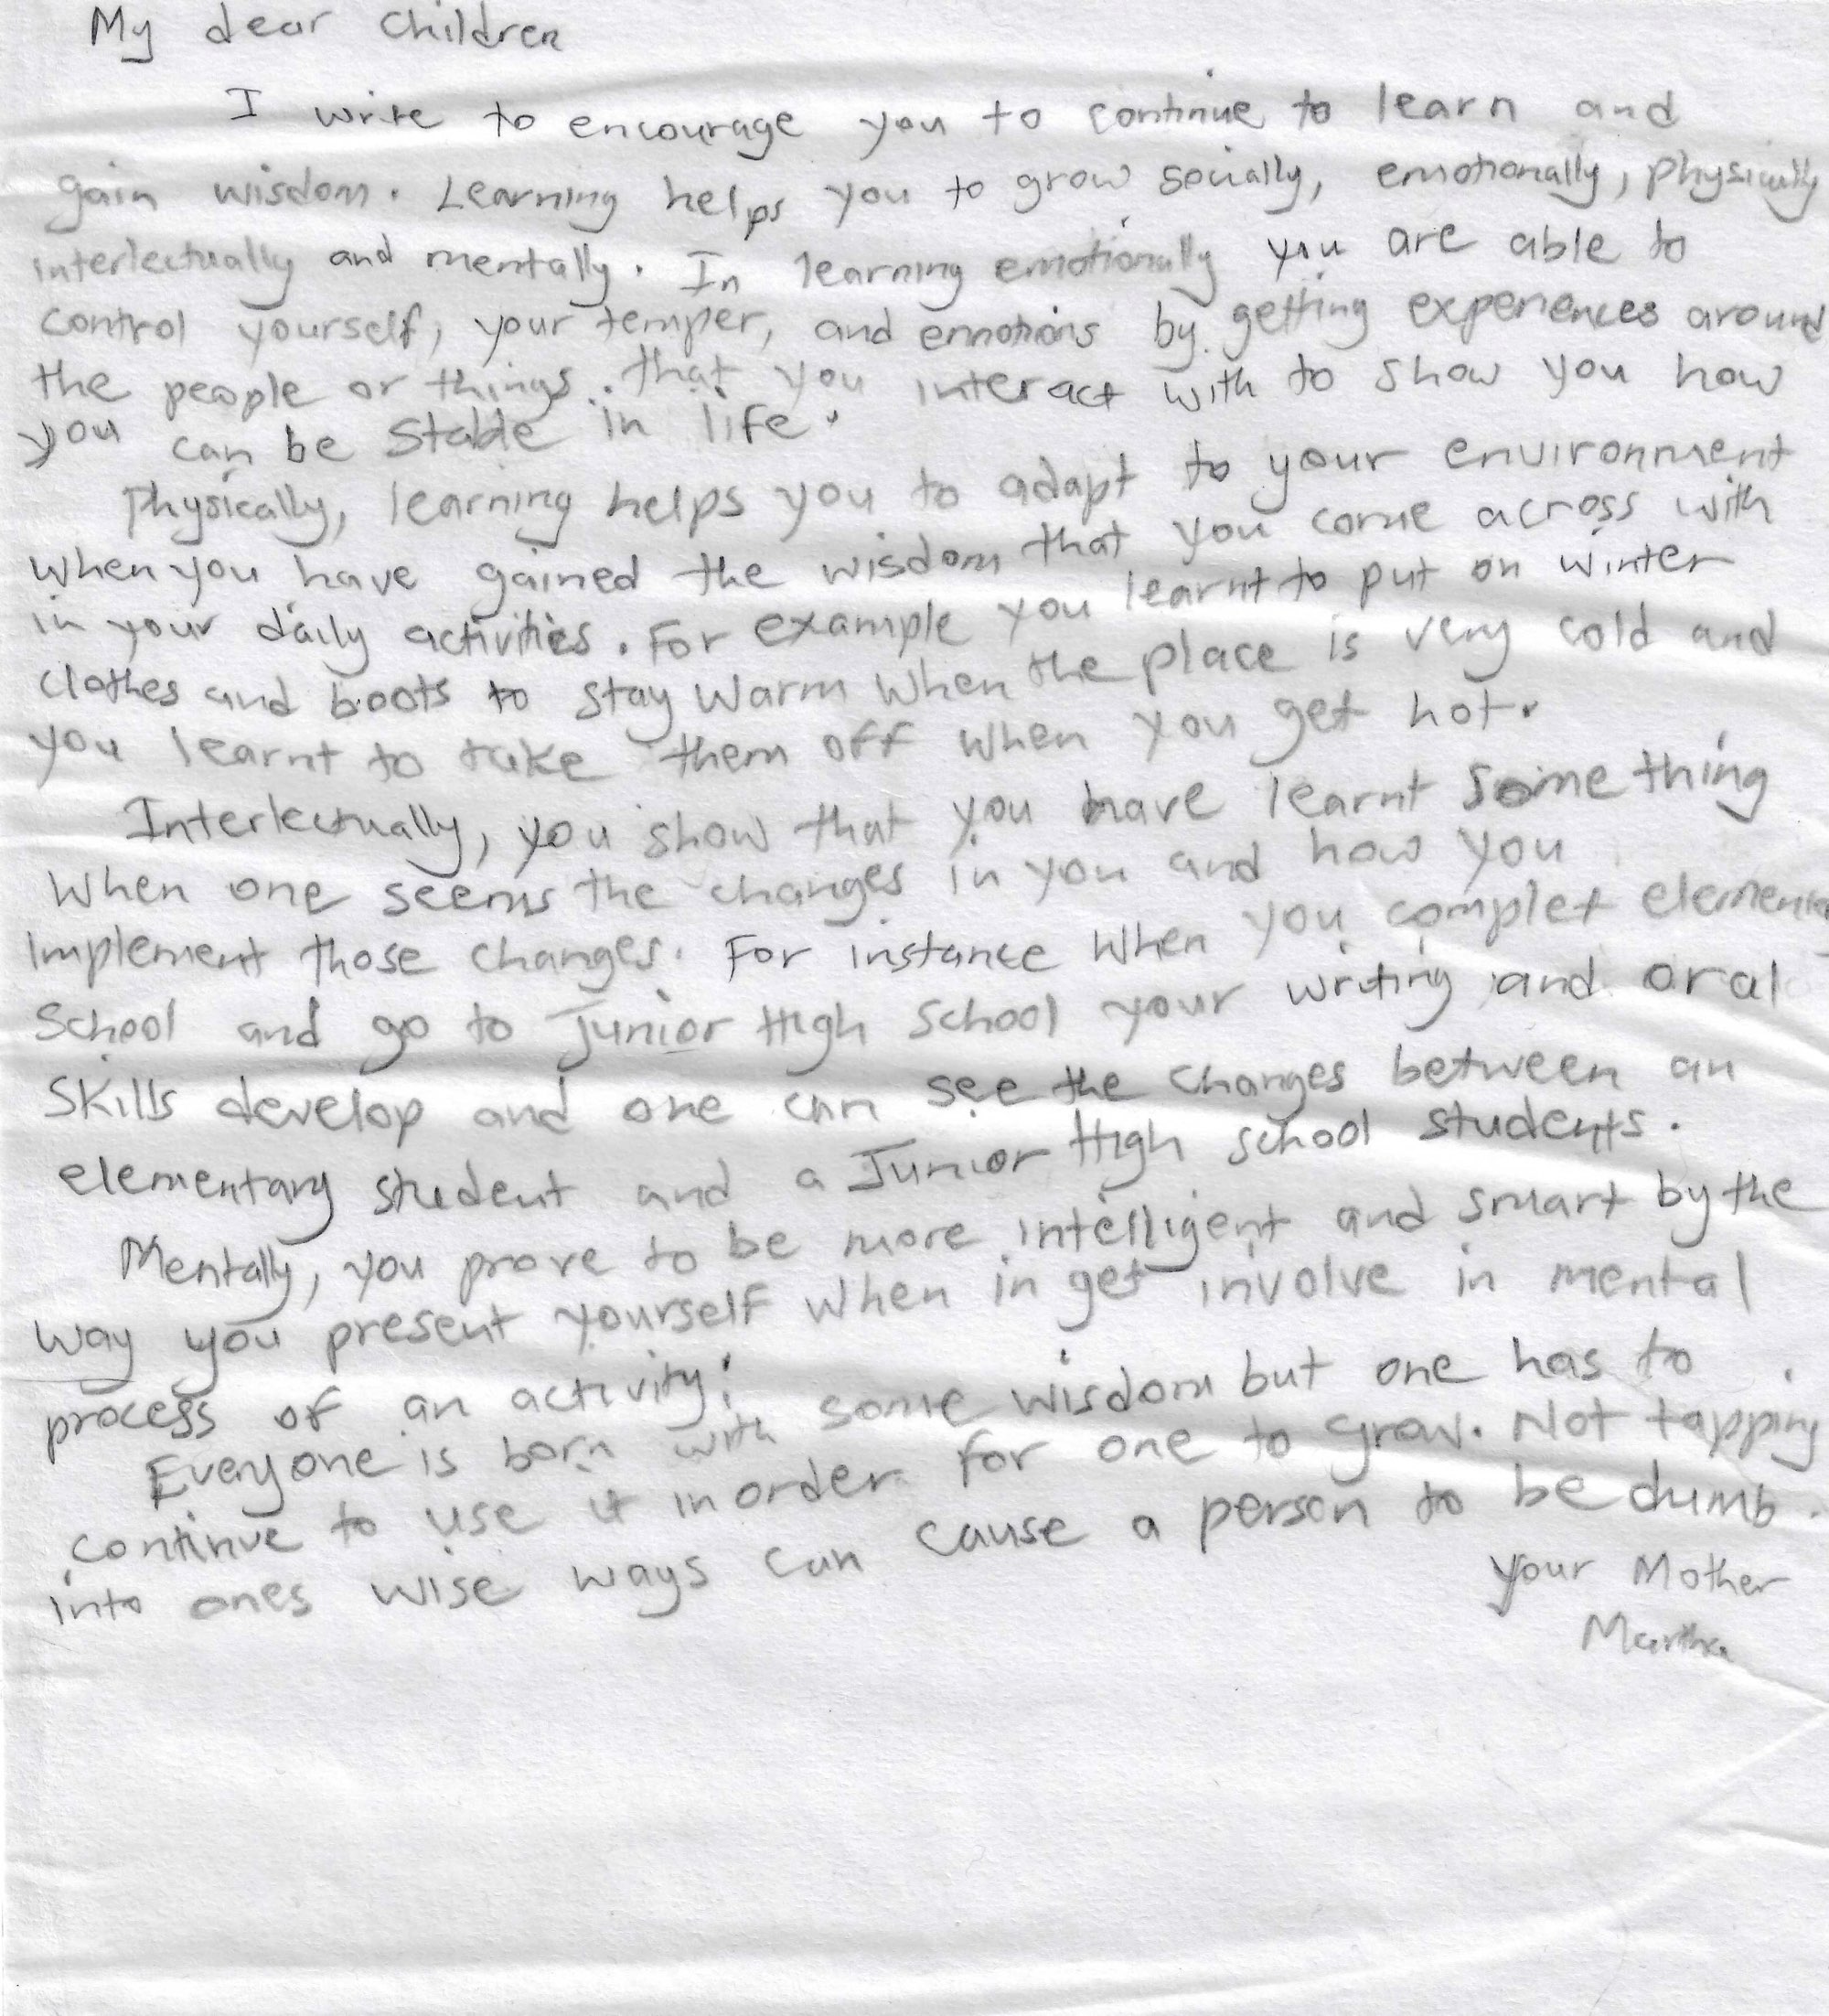 My dear Children
I write to encourage you to continue to learn and
gain wisdom. Learning helps you to grow socially, emotionally, physically
interlectually and mentally. In learning emotionally you are able to
control yourself, your temper, and emotions by getting experiences around
the people or things that you interact with to show you how
you can be stable in life.
Physically, learning helps you to adapt to your environment
when you have gained the wisdom that you come across with
in your daily activities. For example you learnt to put on winter
clothes and boots to stay warm when the place is very cold and
you learnt to take them off when you get hot.
Interlectually, you show that you have learnt something
When one seems the changes in you and how you
implement those changes. For instance when you complet
School and go to Junior High School your writing and oral
Skills develop and one can see the changes between an
elementary student and a Junior High school students.
Mentally, you prove to be more intelligent and smart by the
way you present yourself when in get involve in mental
process of an activity.
Everyone is born with some wisdom but one has to
continue to use it in order for one to grow. Not tapping
into ones wise ways can cause a person to be dumb.
your Mother
Martha